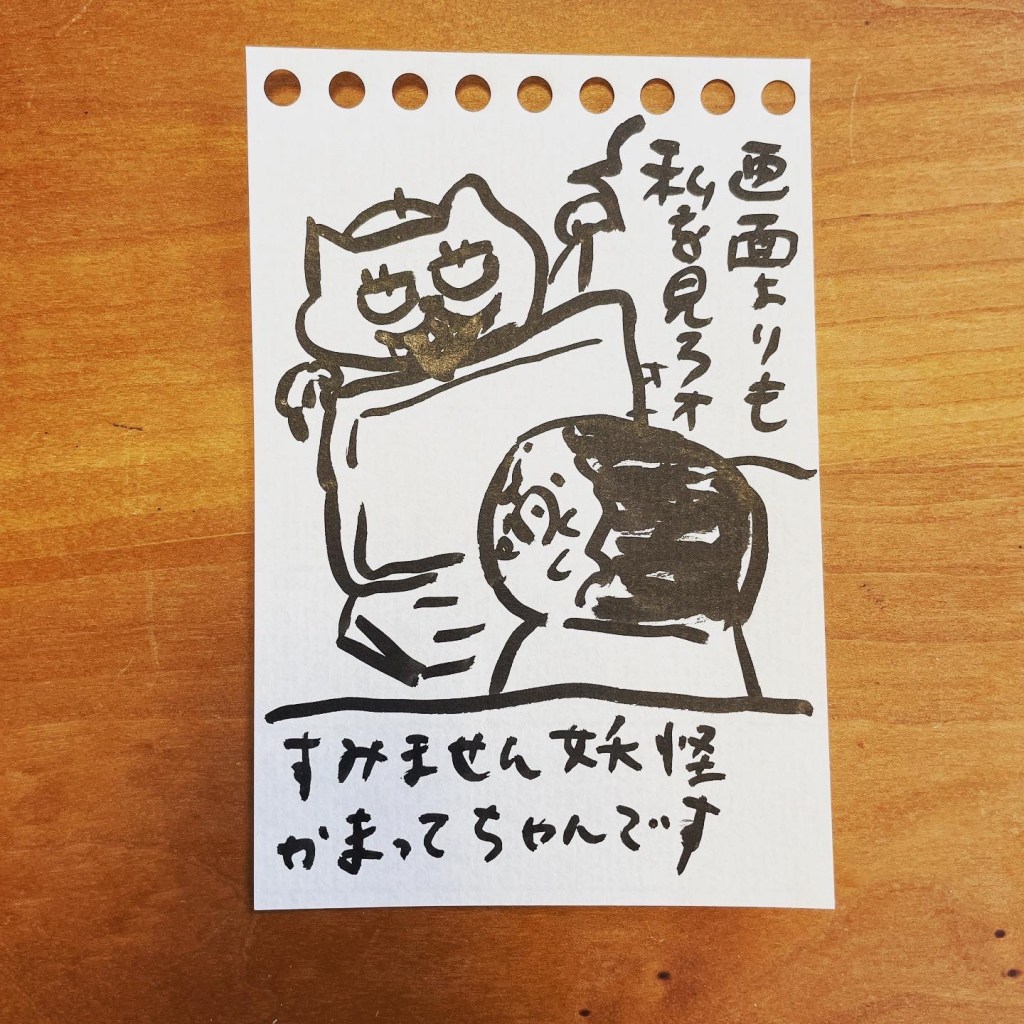 画面よりも
私を見ろォ
すみません妖怪
かまってちゃんです